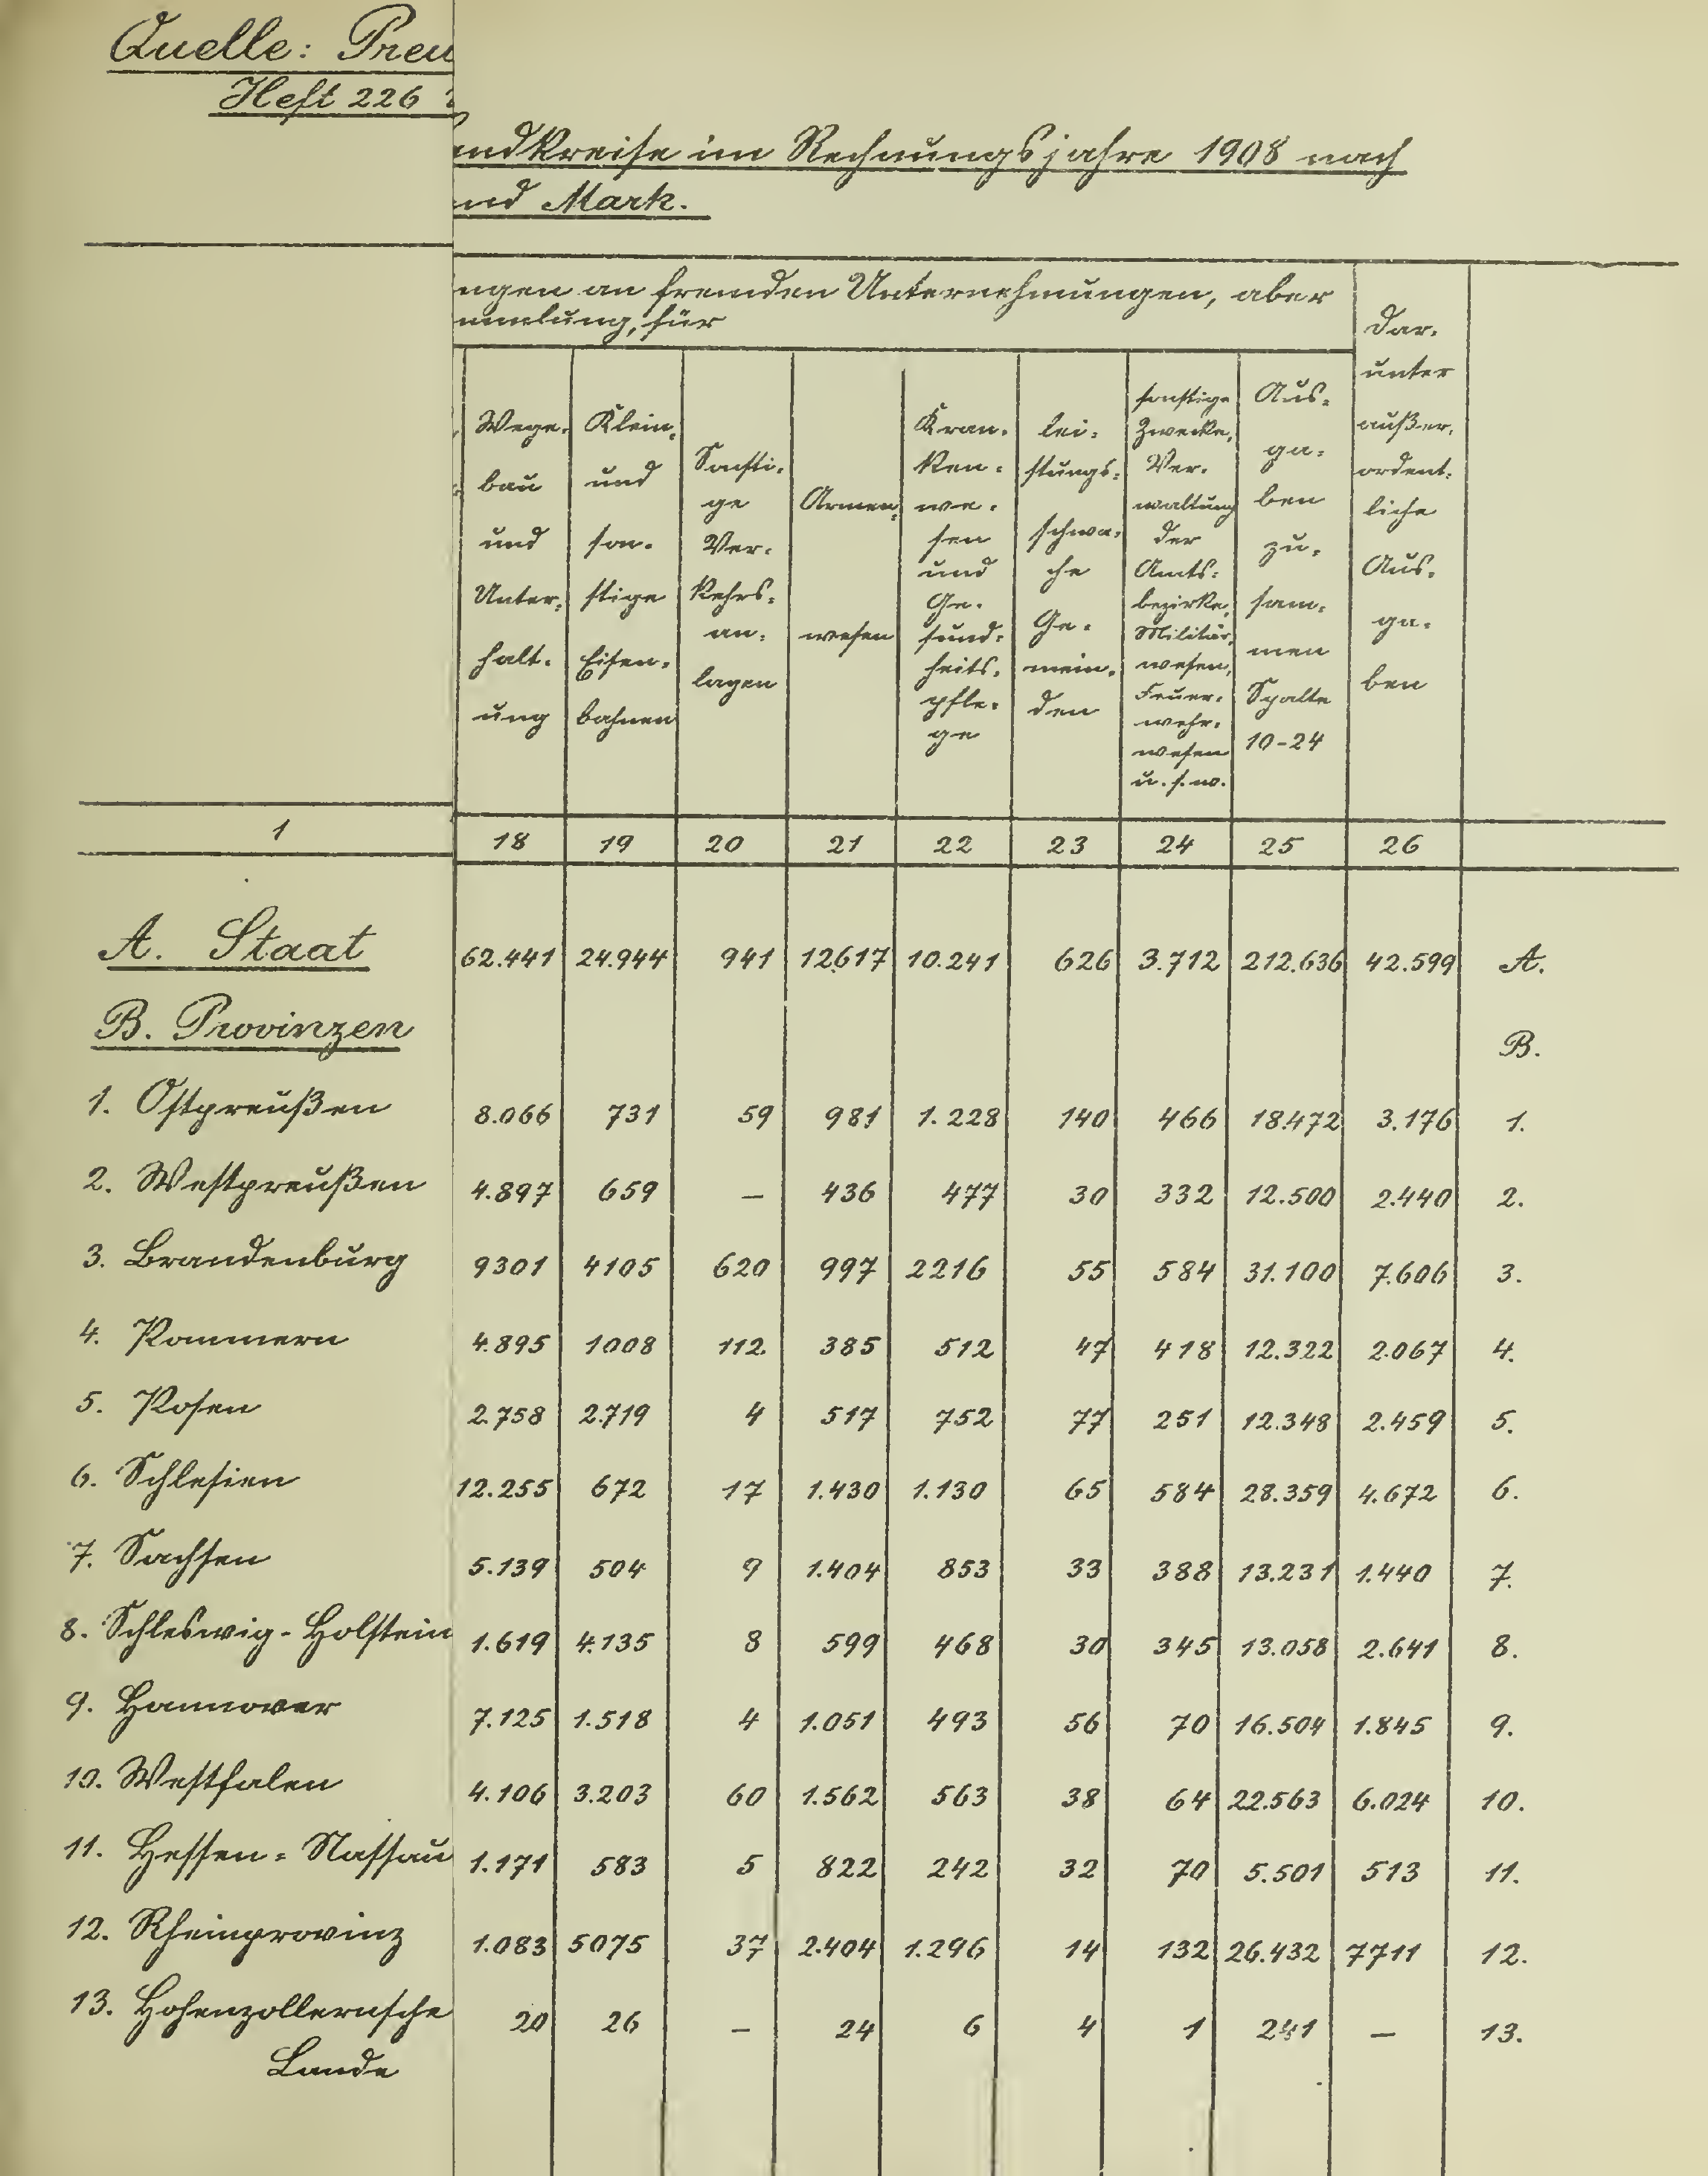 Quelle: Preu
Heft 226
ndkreise im Rechnungsjahre 1908 nach
nd Mark.
ngen an fremden Unternehmungen, aber
mmlung, für
Wege- bau und Unter- halt- ung
Klein- und son- stige Eisen- bahnen
Sonsti- ge Ver- kehrs- an- lagen
Armen- wesen
Kran- ken- we- sen und Ge- sund- heits- pfle- ge
lei- stungs- schwa- che Ge- mein- den
sonstige Zwecke, Ver- waltung der Amts- bezirke, Militär- wesen, Feuer- wehr- wesen u. s. w.
Aus- ga- ben zu- sam- men Spalte 10-24
dar- unter außer- ordent- liche Aus- ga- ben
1 18 19 20 21 22 23 24 25 26
A. Staat 62.441 24.944 941 12.617 10.241 626 3.712 212.636 42.599 A.
B. Provinzen B.
1. Ostpreußen 8.066 731 59 981 1.228 140 466 18.472 3.176 1.
2. Westpreußen 4.897 659 — 436 477 30 332 12.500 2.440 2.
3. Brandenburg 9301 4105 620 997 2216 55 584 31.100 7.606 3.
4. Pommern 4.895 1008 112. 385 512 47 418 12.322 2.067 4.
5. Posen 2.758 2.719 4 517 752 77 251 12.348 2.459 5.
6. Schlesien 12.255 672 17 1.430 1.130 65 584 28.359 4.672 6.
7. Sachsen 5.139 504 9 1.404 853 33 388 13.231 1.440 7.
8. Schleswig-Holstein 1.619 4.135 8 599 468 30 345 13.058 2.641 8.
9. Hannover 7.125 1.518 4 1.051 493 56 70 16.504 1.845 9.
10. Westfalen 4.106 3.203 60 1.562 563 38 64 22.563 6.024 10.
11. Hessen-Nassau 1.171 583 5 822 242 32 70 5.501 513 11.
12. Rheinprovinz 1.083 5075 37 2.404 1.296 14 132 26.432 7711 12.
13. Hohenzollernsche 20 26 — 24 6 4 1 241 — 13.
Lande